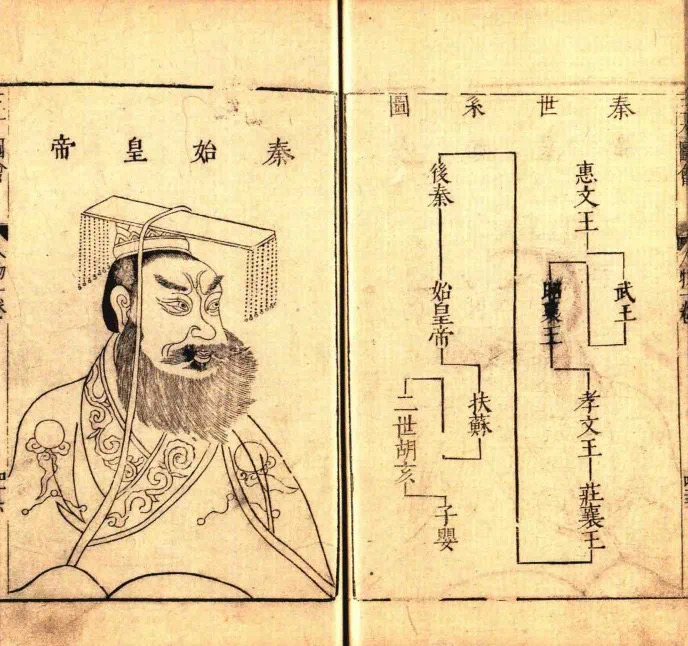 秦世系圖
惠文王
武王
昭襄王
孝文王
莊襄王
後秦
始皇帝
扶蘇
二世胡亥
子嬰
秦始皇帝